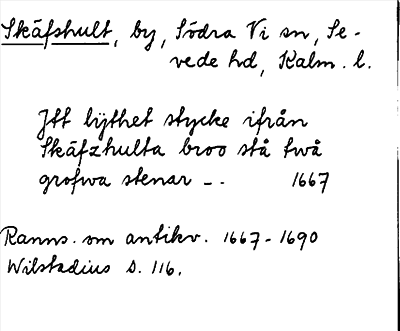 Skäfshult, by, Södra Vi sn, Se-
vede hd, Kalm. l.
Itt lijthet stycke ifrån
Skäfzhulta broo stå twå
grofwa stenar -. 1667
Ranns. om antikv. 1667-1690
Wilstadius s. 116.